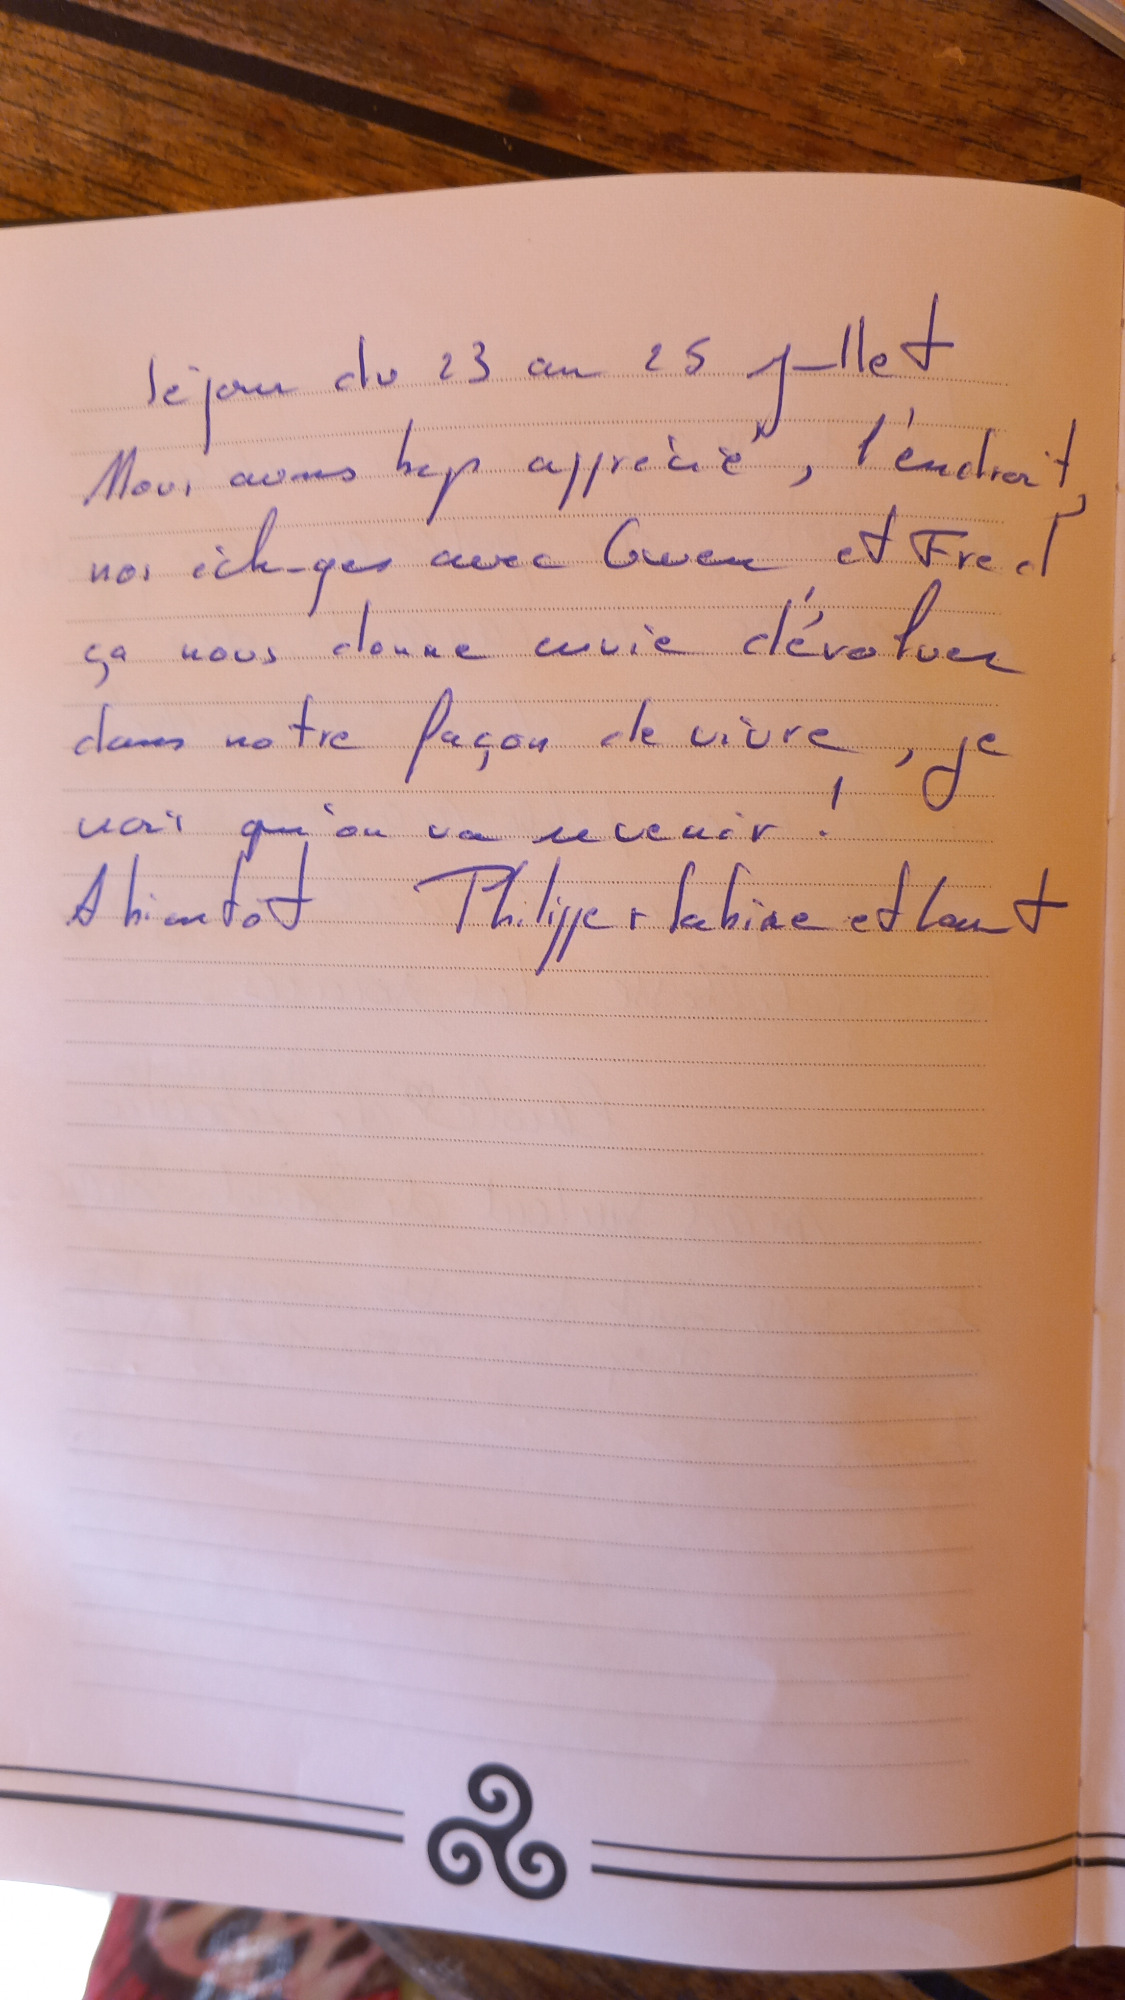 Séjour du 23 au 25 juillet
Nous avons bcp apprécié, l'endroit,
nos échanges avec Gwen et Fred
ça nous donne envie d'évoluer
dans notre façon de vivre, je
vois qu'on va revenir !
A bientôt Philippe + Sabine et